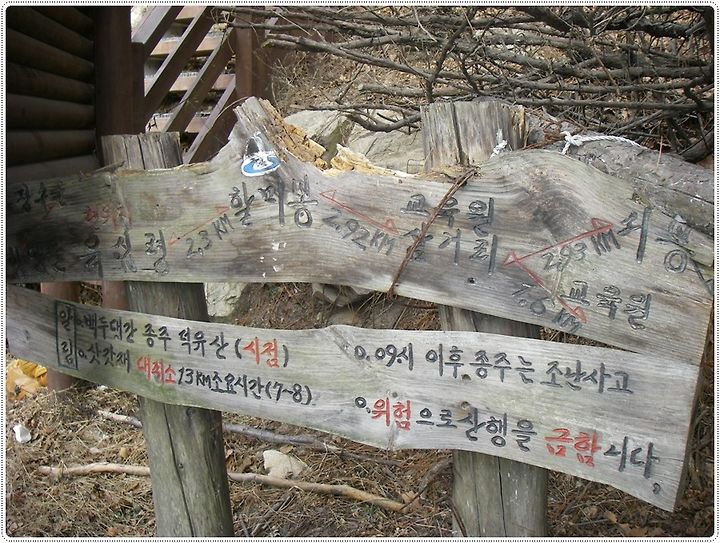 현위치
육십령
2.3 KM
할미봉
2.92KM
교육원
삼거리
2.93 KM
서봉
교육원
알 o.백두대간 종주 덕유산 (시점)
림 o.삿갓재 대피소 13KM소요시간(7-8)
o. 09시 이후 종주는 조난사고
o.위험으로 산행을 금합니다.